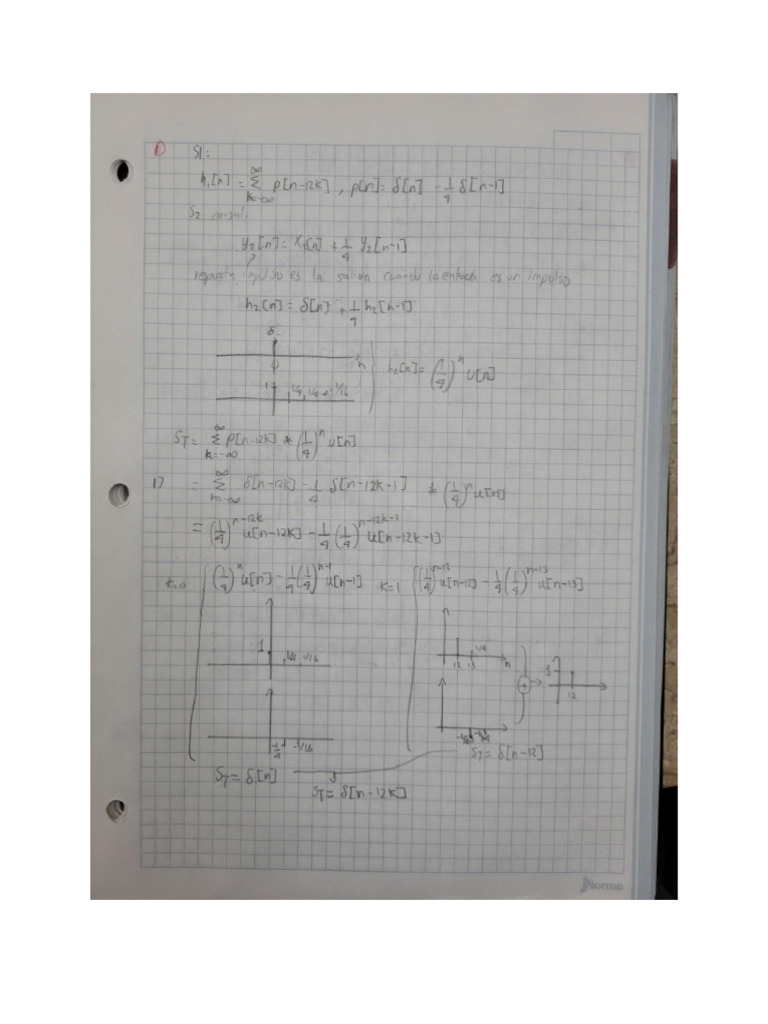 1) S1:
h₁[n] = ∞ Σ k=-∞ p[n-12k] , p[n] = δ[n] - 1/4 δ[n-1]
S2 causal:
y₂[n] = x₂[n] + 1/4 y₂[n-1]
respuesta impulso es la salida cuando la entrada es un impulso
h₂[n] = δ[n] + 1/4 h₂[n-1]
δ
0 n
h₂[n] = (1/4)ⁿ u[n]
1 1/4 1/16
S_T = ∞ Σ k=-∞ p[n-12k] * (1/4)ⁿ u[n]
1) = ∞ Σ k=-∞ δ[n-12k] - 1/4 δ[n-12k-1] * (1/4)ⁿ u[n]
= (1/4)^(n-12k) u[n-12k] - 1/4 (1/4)^(n-12k-1) u[n-12k-1]
k=0 (1/4)ⁿ u[n] - 1/4 (1/4)^(n-1) u[n-1] k=1 (1/4)^(n-12) u[n-12] - 1/4 (1/4)^(n-13) u[n-13]
1 1/4 1/16
12 13 1/4 n
1
12
-1/4 -1/16
S_T = δ[n-12]
S_T = δ[n]
S_T = δ[n-12k]
Norma